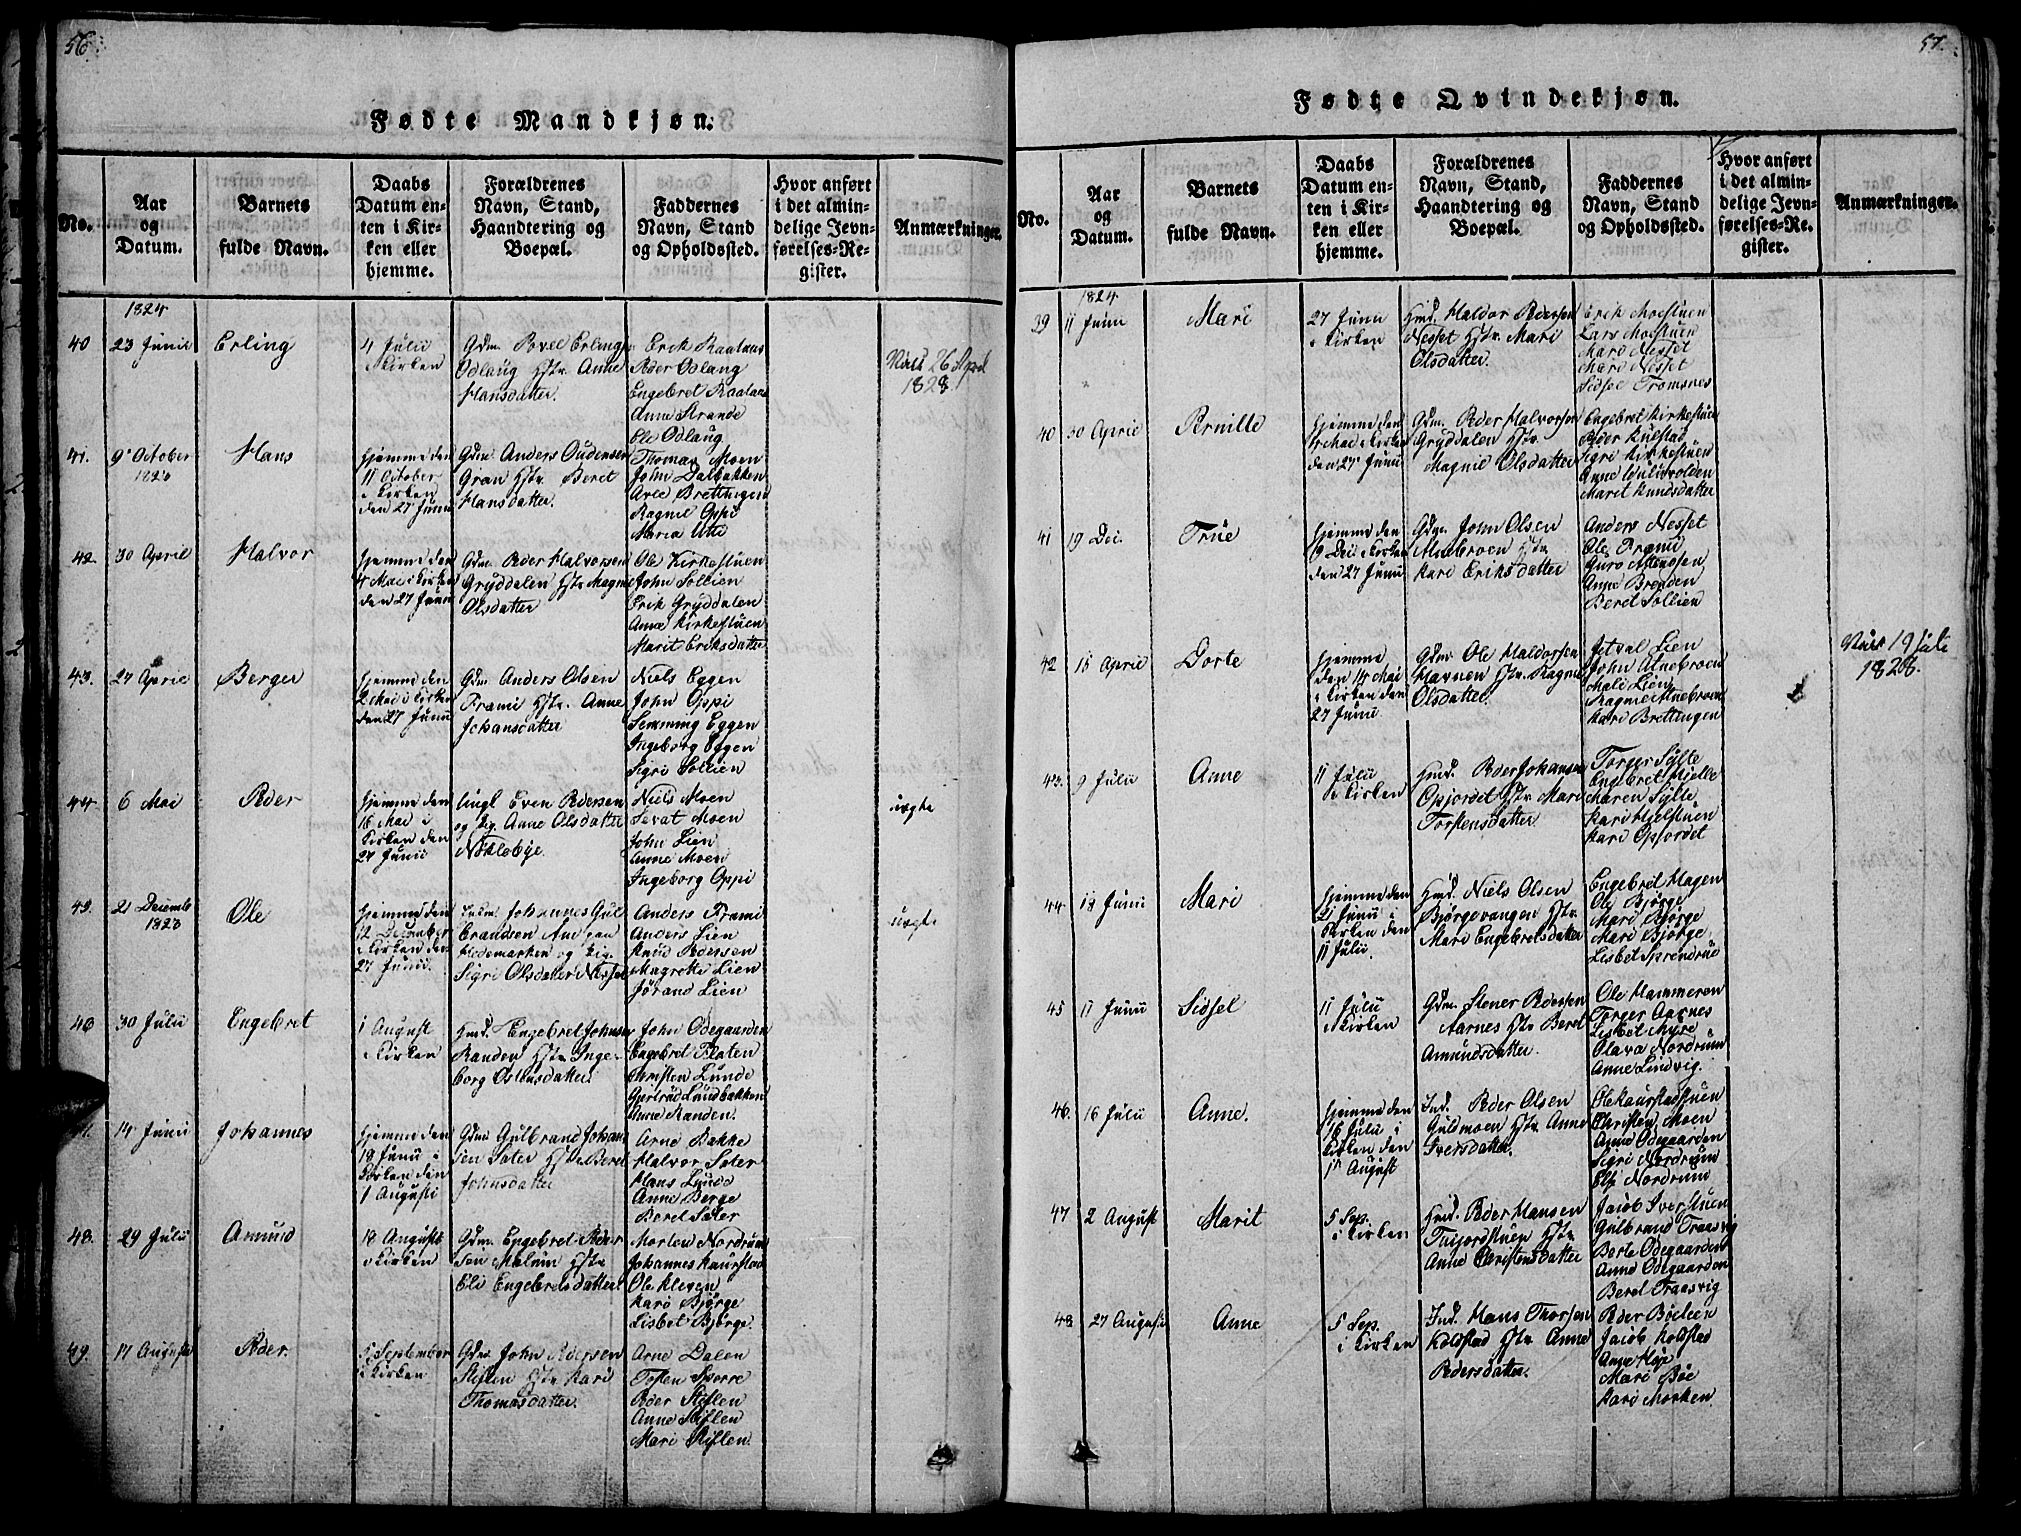 56.
Fødte Mandkjøn.
No.
Aar
og
Datum.
Barnets
fulde Navn.
Daabs
Datum en-
ten i Kir-
ken eller
hjemme.
Forældrenes
Navn, Stand,
Haandtering og
Boepæl.
Faddernes
Navn, Stand
og Opholdssted.
Hvor anført
i det almin-
delige Jevn-
førelses-Re-
gister.
Anmærkninger.
1824
40
23 Junii
Erling
4 Julii
i Kirken
Gdm. Povel Erlings
Odlaug Hstr. Anne
Hansdatter.
Erik Raalaas
Peder Odlaug
Engebret Raalaas
Anne Strande
Ele Odlaug
26 April
1828
41.
9 October
1823
Hans
hjemme den
11 October
i Kirken
den 27 Junii
Gdm. Anders Oudensen
Gran Hstr. Beret
Hansdatter.
Thomas Moen
John Dalbakken
Arve Brettingen
Ragnil Oppi
Maria Utti
42
30 April
Halvor
hjemme den
4 Mai i Kirken
den 27 Junii
Gdm. Peder Halvorsen
Gryddalen Hstr. Magnil
Olsdatter
Ole Kirkestuen
John Sollien
Erik Gryddalen
Anne Kirkestuen
Marit Eriksdatter
43.
27 April
Berger
hjemme den
2 Mai i Kirken
den 27 Junii
Gdm. Anders Olsen
Frami Hstr. Anne
Johansdatter
Niels Eggen
John Oppi
Semming Eggen
Ingeborg Eggen
Sigri Sollien
44.
6 Mai
Peder
hjemme den
16 Mai i
Kirken den
27 Junii
Ungk. Even Pedersen
og Pig. Anne Olsdatter
Niklebye.
Niels Moen
Sevat Moen
John Lien
Anne Moen
Ingeborg Oppi
uægte
45.
21 Decemb
1823
Ole
hjemme den
12 December
i Kirken den
27 Junii.
Johannes Gul
brandsen
Hedemarken og Pig.
Sigri Olsdatter Nesset
Anders Frami
Anders Lien
Knud Pedersen
Magrette Lien
Jørand Lien
uægte
46
30 Julii
Engebret
1 August
i Kirken
Hmd. Engebret Johnsen
Randen Hstr. Inge-
borg Ostensdatter.
John Ødegaarden
Engebret Flaten
Christen Lunde
Gjertrud Lundbakken
Anne Randen.
14 Junii
Johannes
hjemme den
18 Junii i
Kirken den
1 Augusti
Gdm. Gulbrand Johan
sen Sater Hstr. Beret
Johnsdatter
Arne Bakke
Halvor Sater
Hans Lunde
Anne Berge
Beret Sater
48.
29 Julii
Amund
18 Augusti
i Kirken
Gdm. Engebret Peder
sen Melum Hstr.
Eli Engebretsdatter
Morten Nordrum
Johannes Kaurstad
Ole Kleven
Kari Bjørge
Lisbet Bjørge.
49.
17 Augusti
Peder.
5 September
i Kirken
Gdm. John Pedersen
Stiflen Hstr. Kari
Thomasdatter.
Arne Dalen
Tosten Sperre
Peder Stiflen
Anne Stiflen
Mari Stiflen.
57.
Fødte Qvindekjøn.
No.
Aar
og
Datum.
Barnets
fulde Navn.
Daabs
Datum en-
ten i Kir-
ken eller
hjemme.
Forældrenes
Navn, Stand,
Haandtering og
Boepæl.
Faddernes
Navn, Stand
og Opholdssted.
Hvor anført
i det almin-
delige Jevn-
førelses-Re-
gister.
Anmærkninger.
1824
39
11 Junii
Mari
27 Junii
i Kirken
Hmd. Haldor Pedersen
Nesset Hstr. Mari
Olsdatter.
Erik Moestuen
Lars Moestuen
Mari Nesset
Mari Nesset
Sidsel Tromsnes
40
30 April
Pernille
hjemme den
4 Mai i Kirken
den 27 Junii
Gdm. Peder Halvorsen
Gryddalen Hstr.
Magnil Olsdatter
Engebret Kirkestuen
Peder Kulstad
Sigri Kirkestuen
Anne Kulsvolden
Marit Knudsdatter
41
19 Dec.
Trüe
hjemme den
19 Dec i Kirken
den 27 Junii
Gdm. John Olsen
Alnebroen Hstr.
Kari Eriksdatter
Anders Nesset
Ole Frami
Guro
Anne Brenden
Beret Sollien
42
15 April
Dorte
hjemme
den 14 Mai
i Kirken den
27 Junii.
Gdm. Ole Haldorsen
Havnen Hstr. Ragne
Olsdatter.
Lien
John Alnebroen
Mali Lien
Ragnil Alnebroen
Kari Brettingen
19 Juli
1828.
43.
9 Julii
Anne
11 Julii
i Kirken
Hmd. Peder Johansen
Opjordet Hstr. Mari
Torstensdatter.
Torger Sylte
Engebret Hielle
Maren Sylte
Kari Hielstuen
Kari Opjordet
44
18 Junii
Mari
hjemme den
21 Junii i
Kirken den
11 Julii.
Hmd. Niels Olsen
Bjørgevangen Hstr.
Mari Engebretsdatter
Engebret Hagen
Ole Bjørge
Mari Bjørge
Mari Bjørge
Lisbet Sprendrud
45
17 Junii
Sidsel
11 Julii
i Kirken
Gdm. Stener Pedersen
Aarnes Hstr. Beret
Amundsdatter.
Ole Hammeren
Torger Aarnes
Lisbet Myre
Olava Nordrum
Anne Lindvig.
46.
16 Julii
Anne.
hjemme den
16 Julii i
Kirken den
15 August
Ind. Peder Olsen
Guldmoen Hstr. Anne
Iversdatter.
Ole Kaurstadstuen
Christen Moen
Anne Ødegaarden
Sigri Nordrum
Eli Nordrum
47
2 August
Marit
5 Sep.
i Kirken
Hmd. Peder Hansen
Hstr.
Anne Christensdatter
Jacob Iverstuen
Gulbrand Traasvig
Berte Ødegaarden
Anne Ødegaarden
Beret Traasvig
48
27 Augusti
Anne
5 Sep.
i Kirken
Ind. Hans Thorsen
Kolstad Hstr. Anne
Pedersdatter.
Peder Böeleen
Jacob Kolstad
Anne
Mari Böe
Kari Morken.